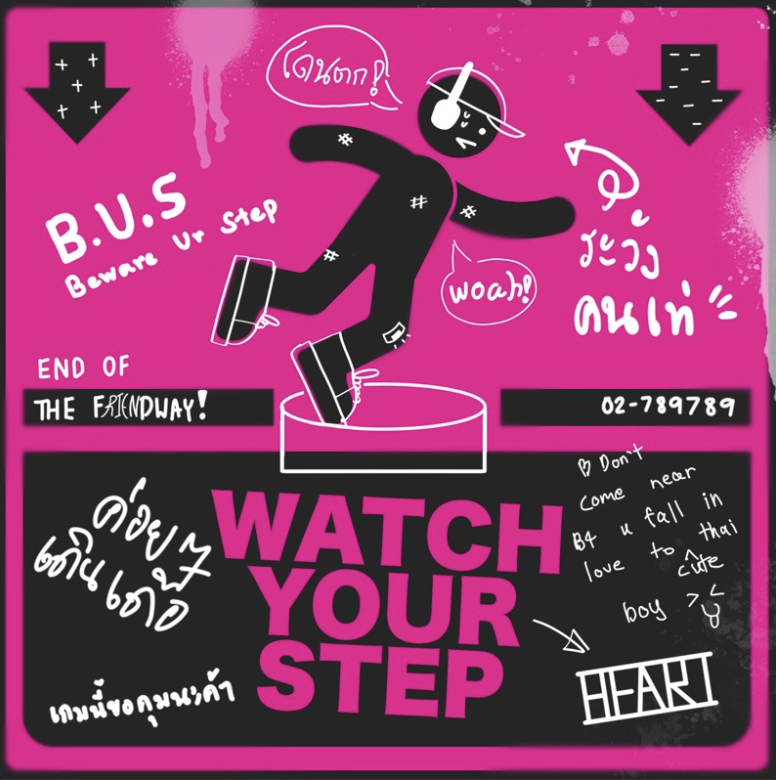 โดนตก!
B.U.S
Beware Ur Step
ระวัง
คนเท่
woah!
END OF
THE FRIENDWAY!
02-789789
ค่อยๆ
เดินเด้อ
WATCH
YOUR
STEP
Don't
come near
B4 u fall in
love to thai
cute
boy
HEART
เกมนี้ขอคุมนะค้า